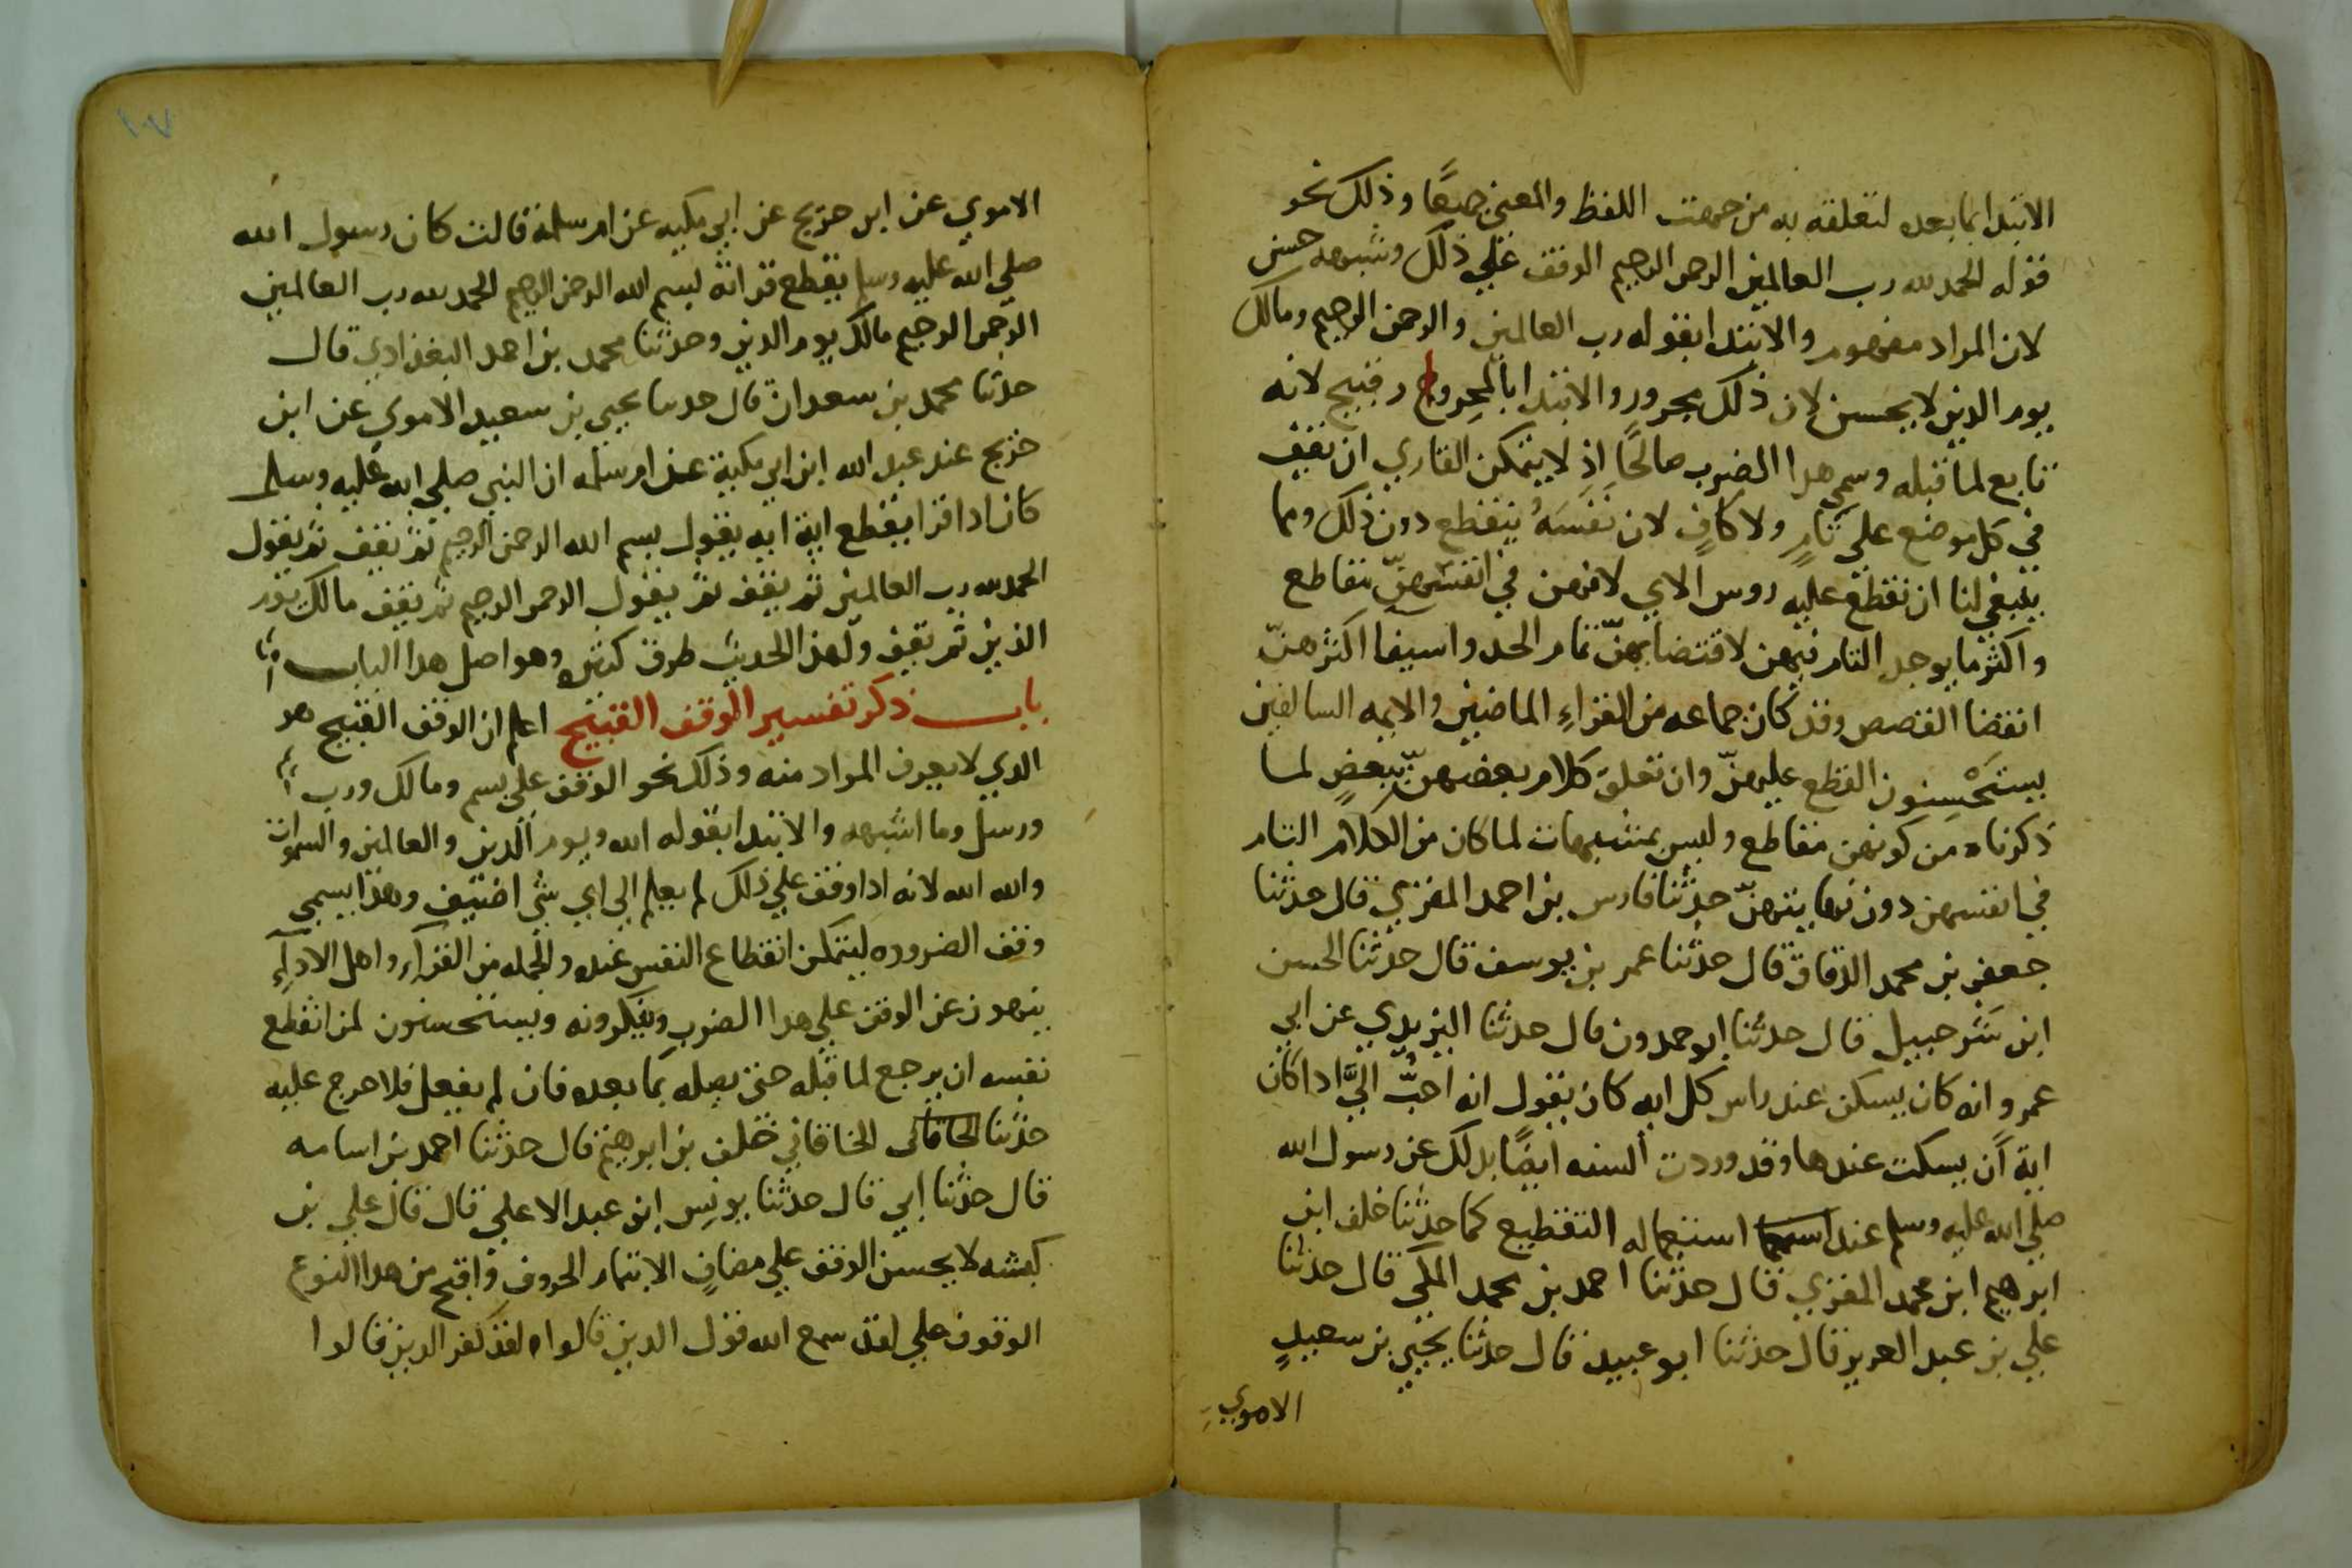 الابتدا بما بعده لتعلقه به من جهت اللفظ والمعني جميعًا وذلك نحو
قوله الحمد لله رب العالمين الرحمن الرحيم الوقف علي ذلك وشبهه حسن
لان المراد مفهوم والابتدا بقوله رب العالمين والرحمن الرحيم ومالك
يوم الدين لا يحسن لان ذلك مجرور والابتدا بالمجرور قبيح لانه
تابع لما قبله وسمي هدا الضرب صالحًا اذ لا يتمكن القاري ان تقف
في كل موضع علي تامٍ ولا كافٍ لان نَفَسَهُ ينقطع دون ذلك ومما
ينبغي لنا ان نقطع عليه روس الاي لانهن في انفسهنّ مقاطع
واكثر ما يوجد التام فيهن لاقتضايهنّ تمام الحد واسيفا اكثرهنّ
انقضا القصص وقد كان جماعه من القراءِ الماضين والايمه السالفين
يستَحْسِنون القطع عليهنّ وان تعلق كلام بعضهنّ ببعضٍ لما
ذكرناه من كونهن مقاطع وليس بمشبهات لما كان من الكلام التام
في انفسهن دون نهايتهنّ حدثنا فارس بن احمد المقري قال حدثنا
جعفر بن محمد الدقاق قال حدثنا عمر بن يوسف قال حدثنا الحسن
ابن شرحبيل قال حدثنا ابو حمدون قال حدثنا اليزيدي عن ابي
عمرو انه كان يسكن عند راس كل ايه كان يقول انه احبُّ اليَّ ادا كان
اية أن يسكت عندها وقد وردت السنه ايضًا بدلك عن رسول الله
صلي الله عليه وسلم عند استعماله التقطيع كما حدثنا خلف ابن
ابرهيم ابن محمد المقري قال حدثنا احمد بن محمد المكي قال حدثنا
علي بن عبد العزيز قال حدثنا ابو عبيد قال حدثنا يحيي بن سعيدٍ
الاموي
الاموي عن ابن جريج عن ابي مليكه عن ام سلمة قالت كان رسول الله
صلي الله عليه وسلم يقطع قرانه بسم الله الرحمن الرحيم الحمد لله رب العالمين
الرحمن الرحيم مالك يوم الدين وحدثنا محمد بن احمد البغدادي قال
حدثنا محمد بن سعدان قال حدثنا يحيي بن سعيد الاموي عن ابن
جريج عند عبد الله ابن ابي مليكة عن ام سلمه ان النبي صلي الله عليه وسلم
كان ادا قرا يقطع اية ايه يقول بسم الله الرحمن الرحيم ثم يقف ثم يقول
الحمد لله رب العالمين ثم يقف ثم يقول الرحمن الرحيم ثم يقف مالك يوم
الدين ثم يقف ولهذا الحديث طرق كثيره وهو اصل هدا الباب
باب ذكر تفسير الوقف القبيح اعلم ان الوقف القبيح هو
الدي لا يعرف المراد منه وذلك نحو الوقف علي بسم ومالك ورب
ورسل وما اشبهه والابتدا بقوله الله ويوم الدين والعالمين والسموات
والله الله لانه اذا وقف علي ذلك لم يعلم الي اي شي اضيف وهذا يسمي
وقف الضروره ليتمكن انقطاع النفس عنده والجمله من القرآءِ واهل الادآءِ
ينهون عن الوقف علي هدا الضرب وينكرونه ويستحسنون لمن انقطع
نفسه ان يرجع لما قبله حتي يصله بما بعده فان لم يفعل فلا حرج عليه
حدثنا الخاقاني الخاقاني خلف بن ابرهيم قال حدثنا احمد بن اسامه
قال حدثنا ابي قال حدثنا يونس ابن عبد الاعلي قال قال علي بن
كبشه لا يحسن الوقف علي مضافٍ الا بتمام الحروف واقبح من هدا النوع
الوقوف علي لقد سمع الله قول الدين قالوا ه لقد كفر الدين قالوا